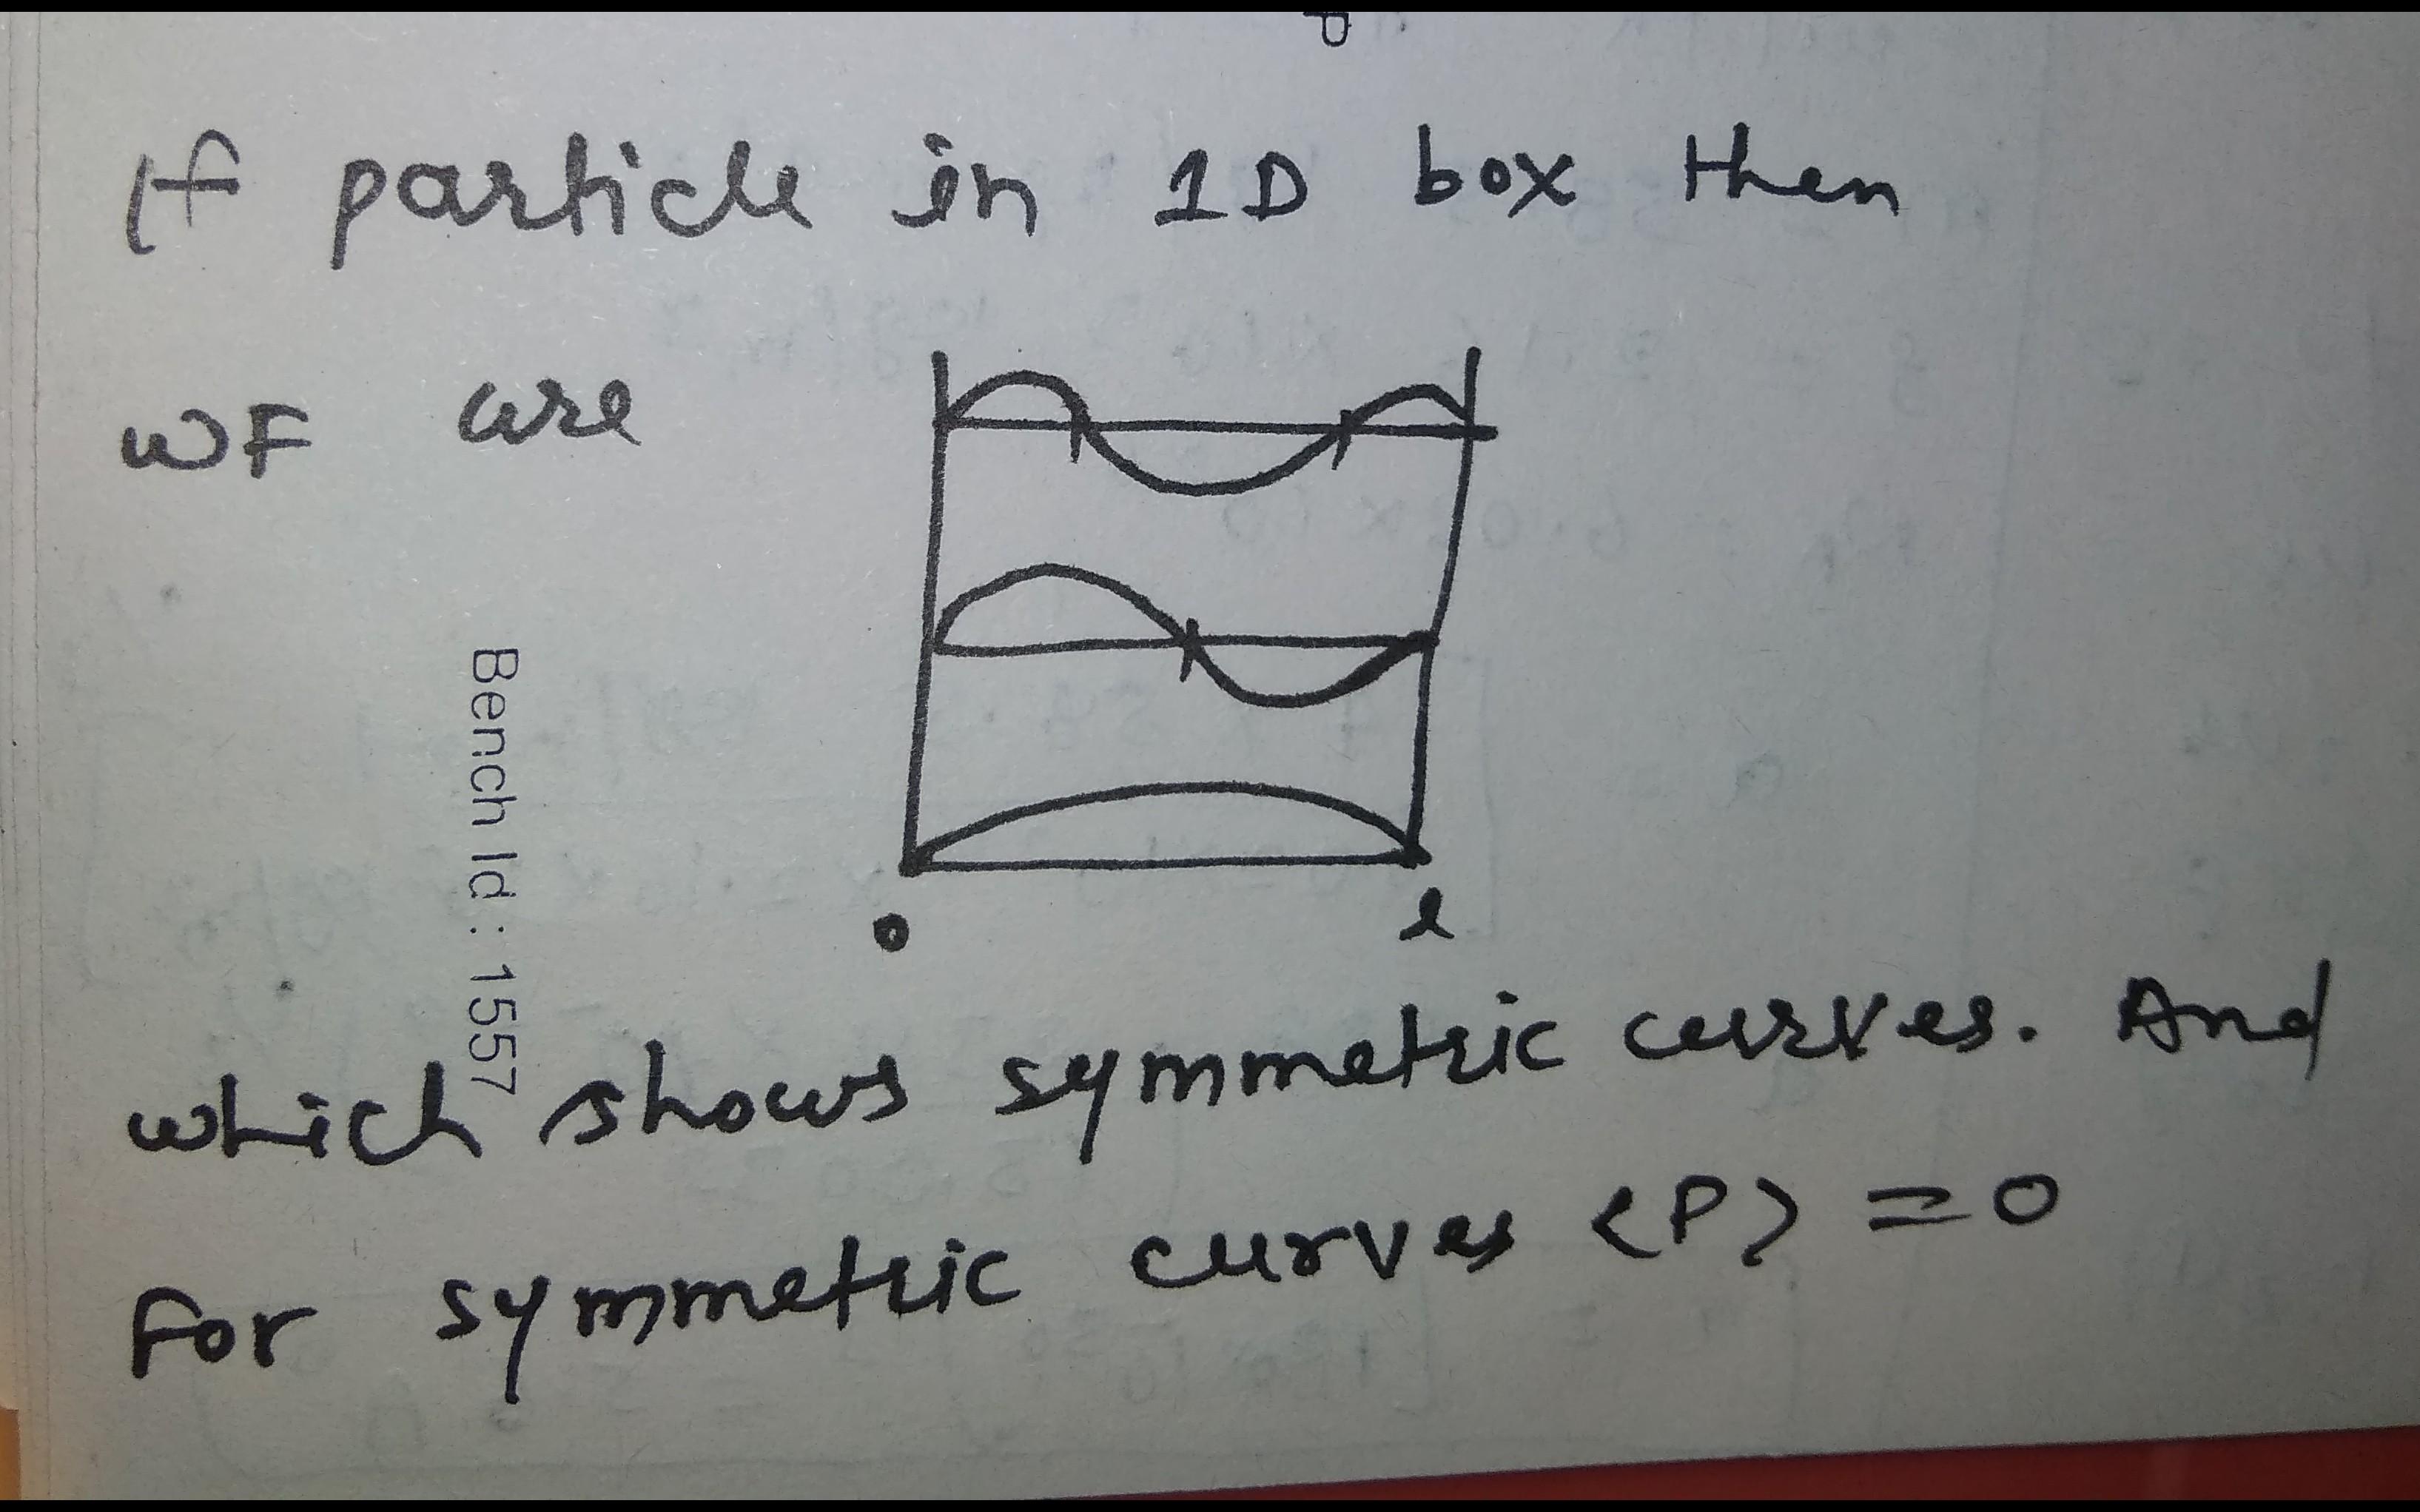 If particle in 1D box then
WF are
0 l
which shows symmetric curves. And
for symmetric curves <P> = 0
Bench Id : 1557